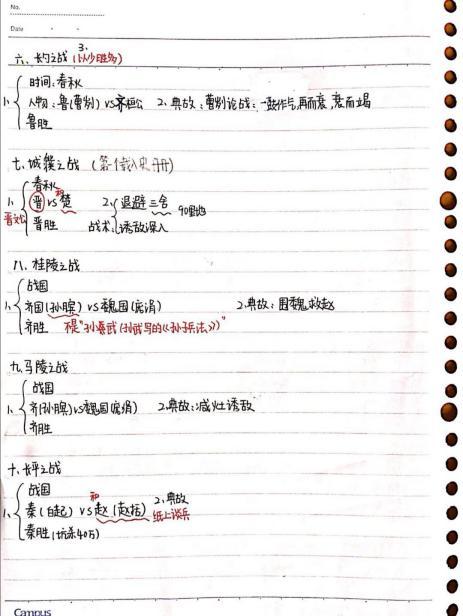 No.
Date
六、长勺之战 3、(以少胜多)
时间:春秋
1、人物:鲁(曹刿) vs 齐桓公 2、典故:曹刿论战:一鼓作气,再而衰,衰而竭
鲁胜
七、城濮之战 (第一次载入史册)
春秋
1、晋 vs 楚 和 2、退避三舍 90里地
晋文公 晋胜 战术 诱敌深入
八、桂陵之战
战国
1、齐国(孙膑) vs 魏国(庞涓) 2、典故:围魏救赵
齐胜 不是"孙武(孙武写的《孙子兵法》)"
九、马陵之战
战国
1、齐(孙膑) vs 魏国(庞涓) 2、典故:减灶诱敌
齐胜
十、长平之战
战国
1、秦(白起) vs 和 赵(赵括) 2、典故
纸上谈兵
秦胜(坑杀40万)
Campus